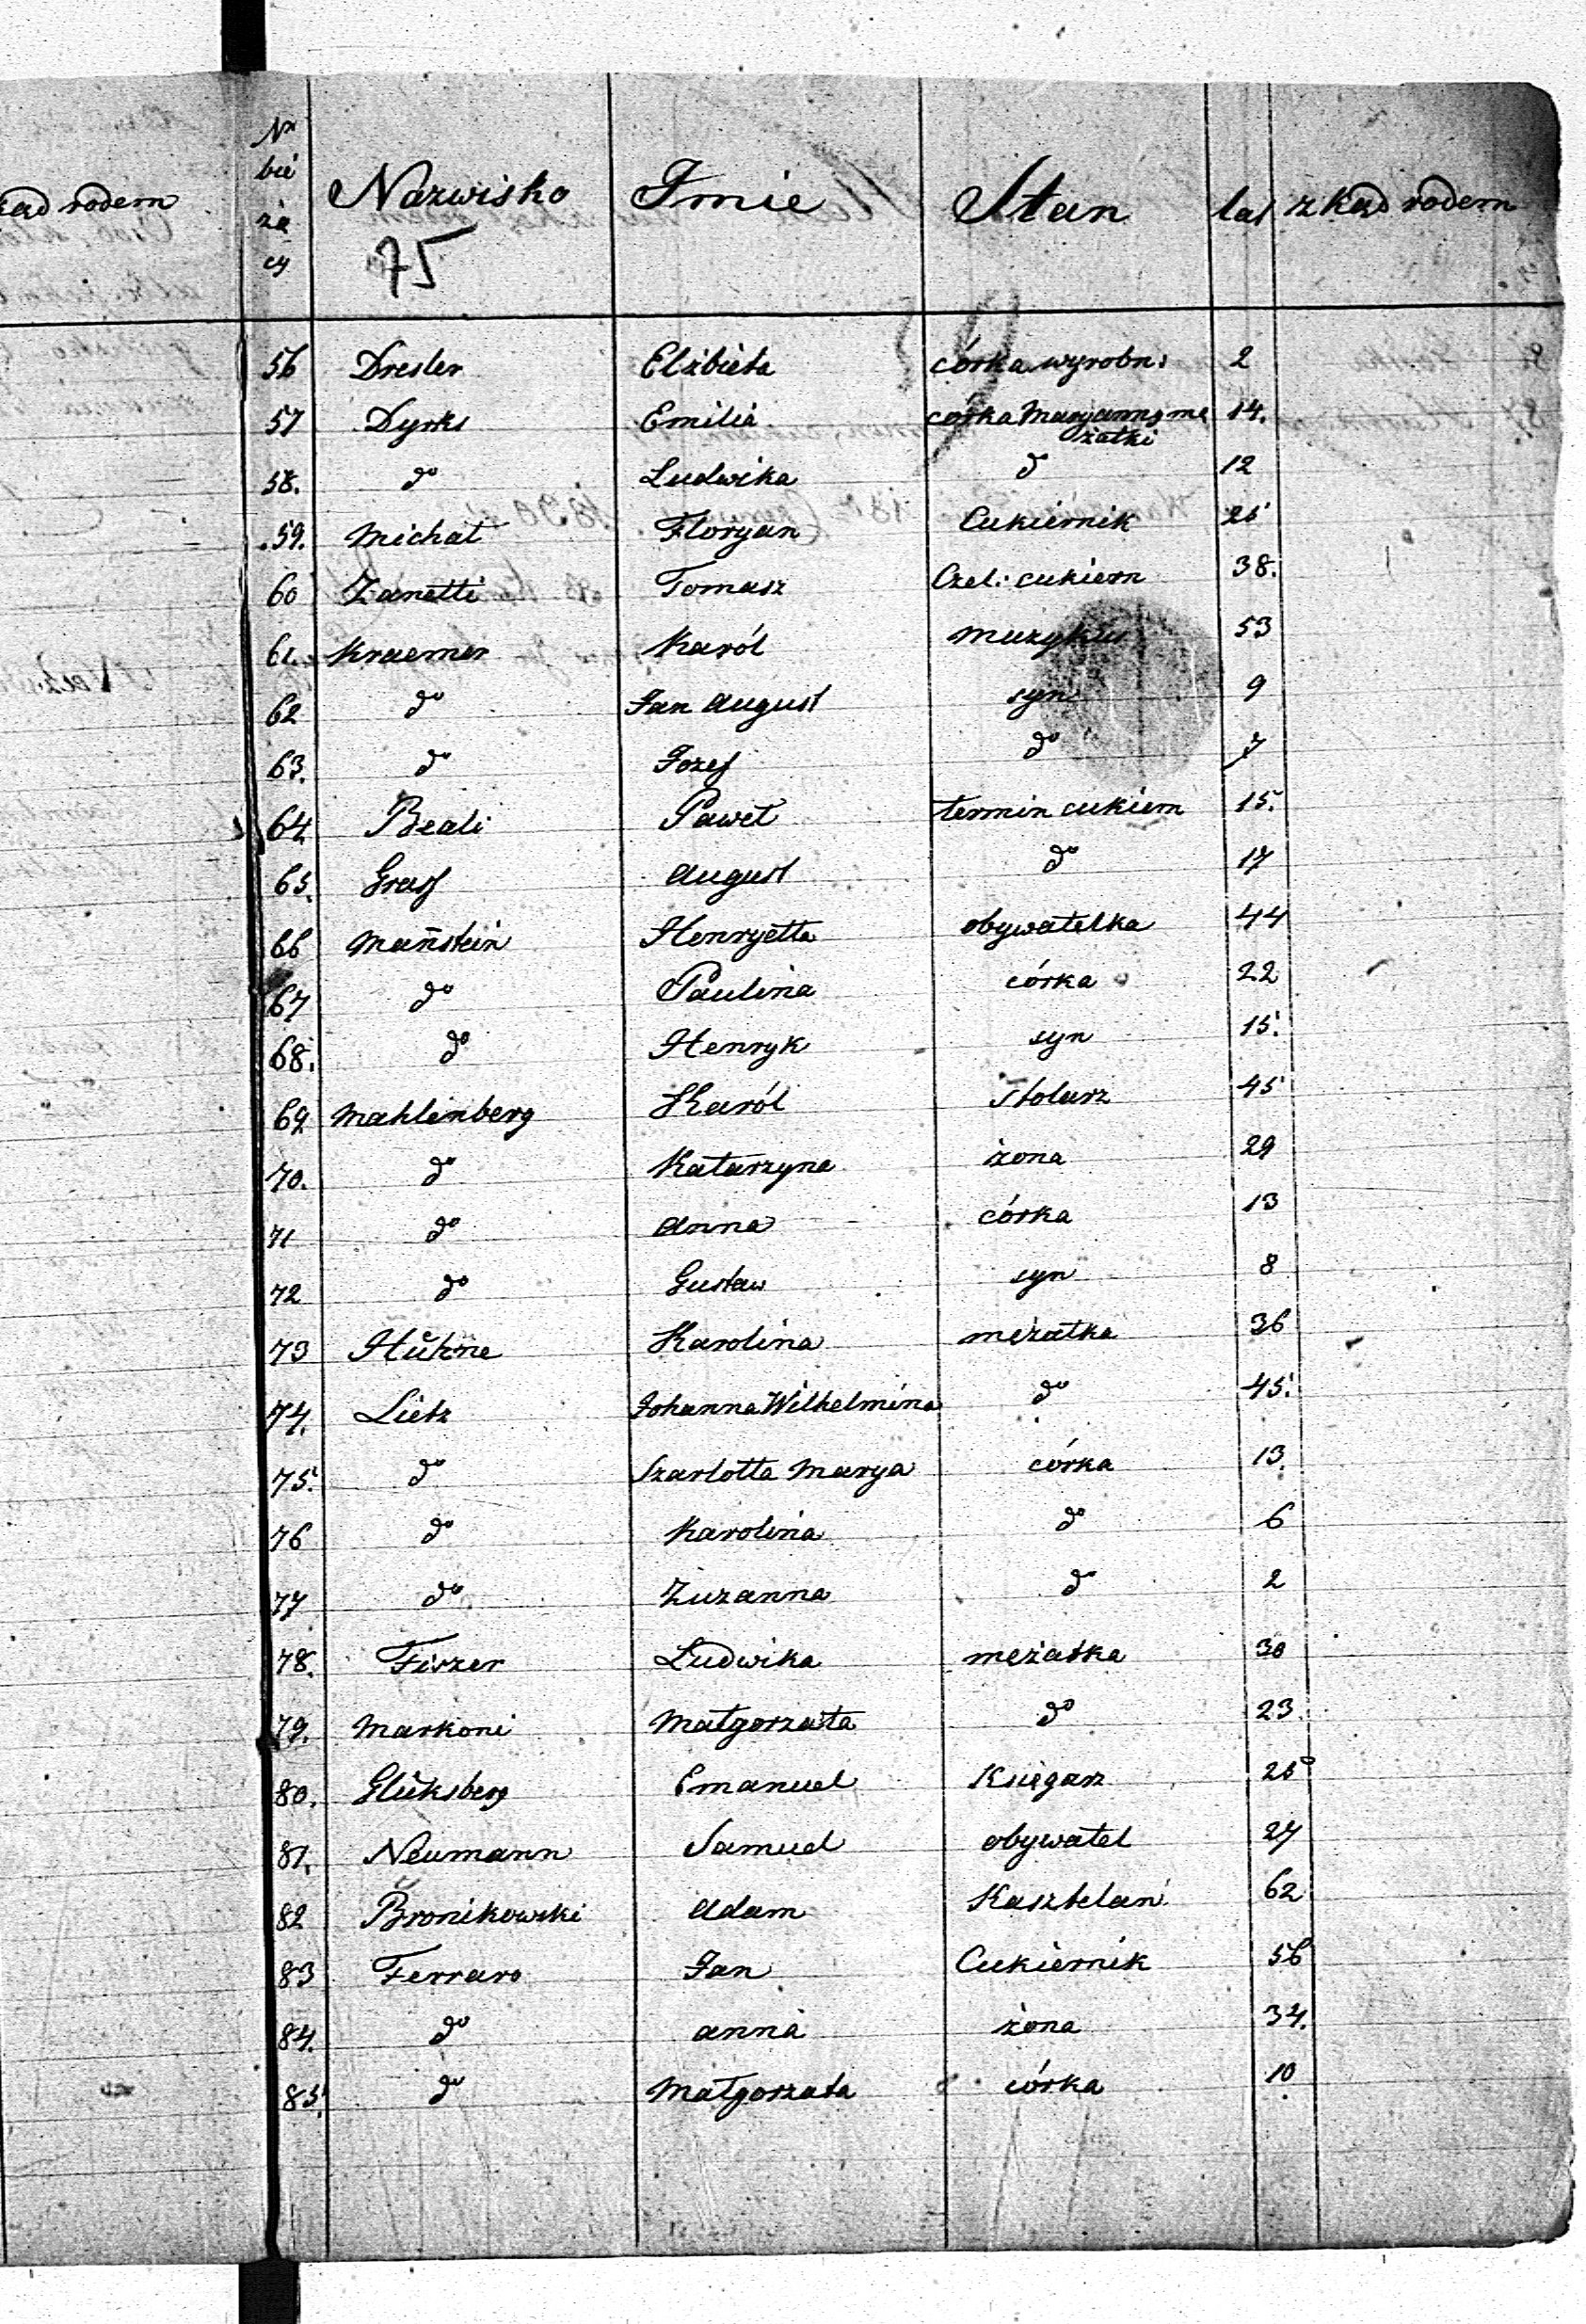 zkąd rodem
Nr bie żą cy Nazwisko Imie Stan lat zkąd rodem
75
56 Dresler Elżbieta córka wyrobn: 2
57 Dyrks Emilia córka Maryanny mę 14.
żatki
58. do Ludwika do 12
59. Michat Floryan Cukiernik 25
60 Zanetti Tomasz Czel: cukiern 38.
61. Kraemer Karól muzykus 53
62 do Jan August syn 9
63. do Jozef do 7
64 Beali Paweł termin cukiern 15.
65. Graff August do 17
66 Mañstein Henryetta obywatelka 44
67 do Paulina córka 22
68. do Henryk syn 15.
69 Mahlenberg Karól Stolarz 45
70. do Katarzyna żona 29
71 do Anna córka 13
72 do Gustaw syn 8
73 Karolina mężatka 36
74. Lietz Johanna Wilhelmina do 45.
75. do Szarlotta Marya córka 13
76 do Karolina do 6
77 do Zuzanna do 2
78. Fiszer Ludwika mężatka 30
79. Markoni Małgorzata do 23.
80. Glüksberg Emanuel Księgarz 25
81. Neumann Samuel obywatel 27
82 Bronikowski Adam Kasztelan 62
83 Ferraro Jan Cukiernik 56
84. do Anna żona 34.
85. do Małgorzata córka 10